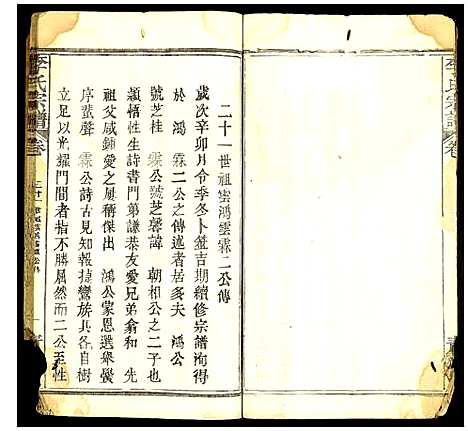 二十一世祖雲鴻雲霖二公傳
歲次辛卯月令季冬卜筮吉期續修宗譜洵得
於 鴻 霖二公之傳述者居多夫 鴻公
號芝桂 霖公號芝馨諱 朝相公之二子也
穎悟性生詩書門第謙恭友愛兄弟翕和 先
祖父咸鍾愛之屢稱傑出 鴻公家恩選舉黌
序蜚聲 霖公詩古見知報捷鸞族其各自樹
立足以光耀門閭者指不勝屈然而二公至性
李氏宗譜 卷
李氏宗譜 卷